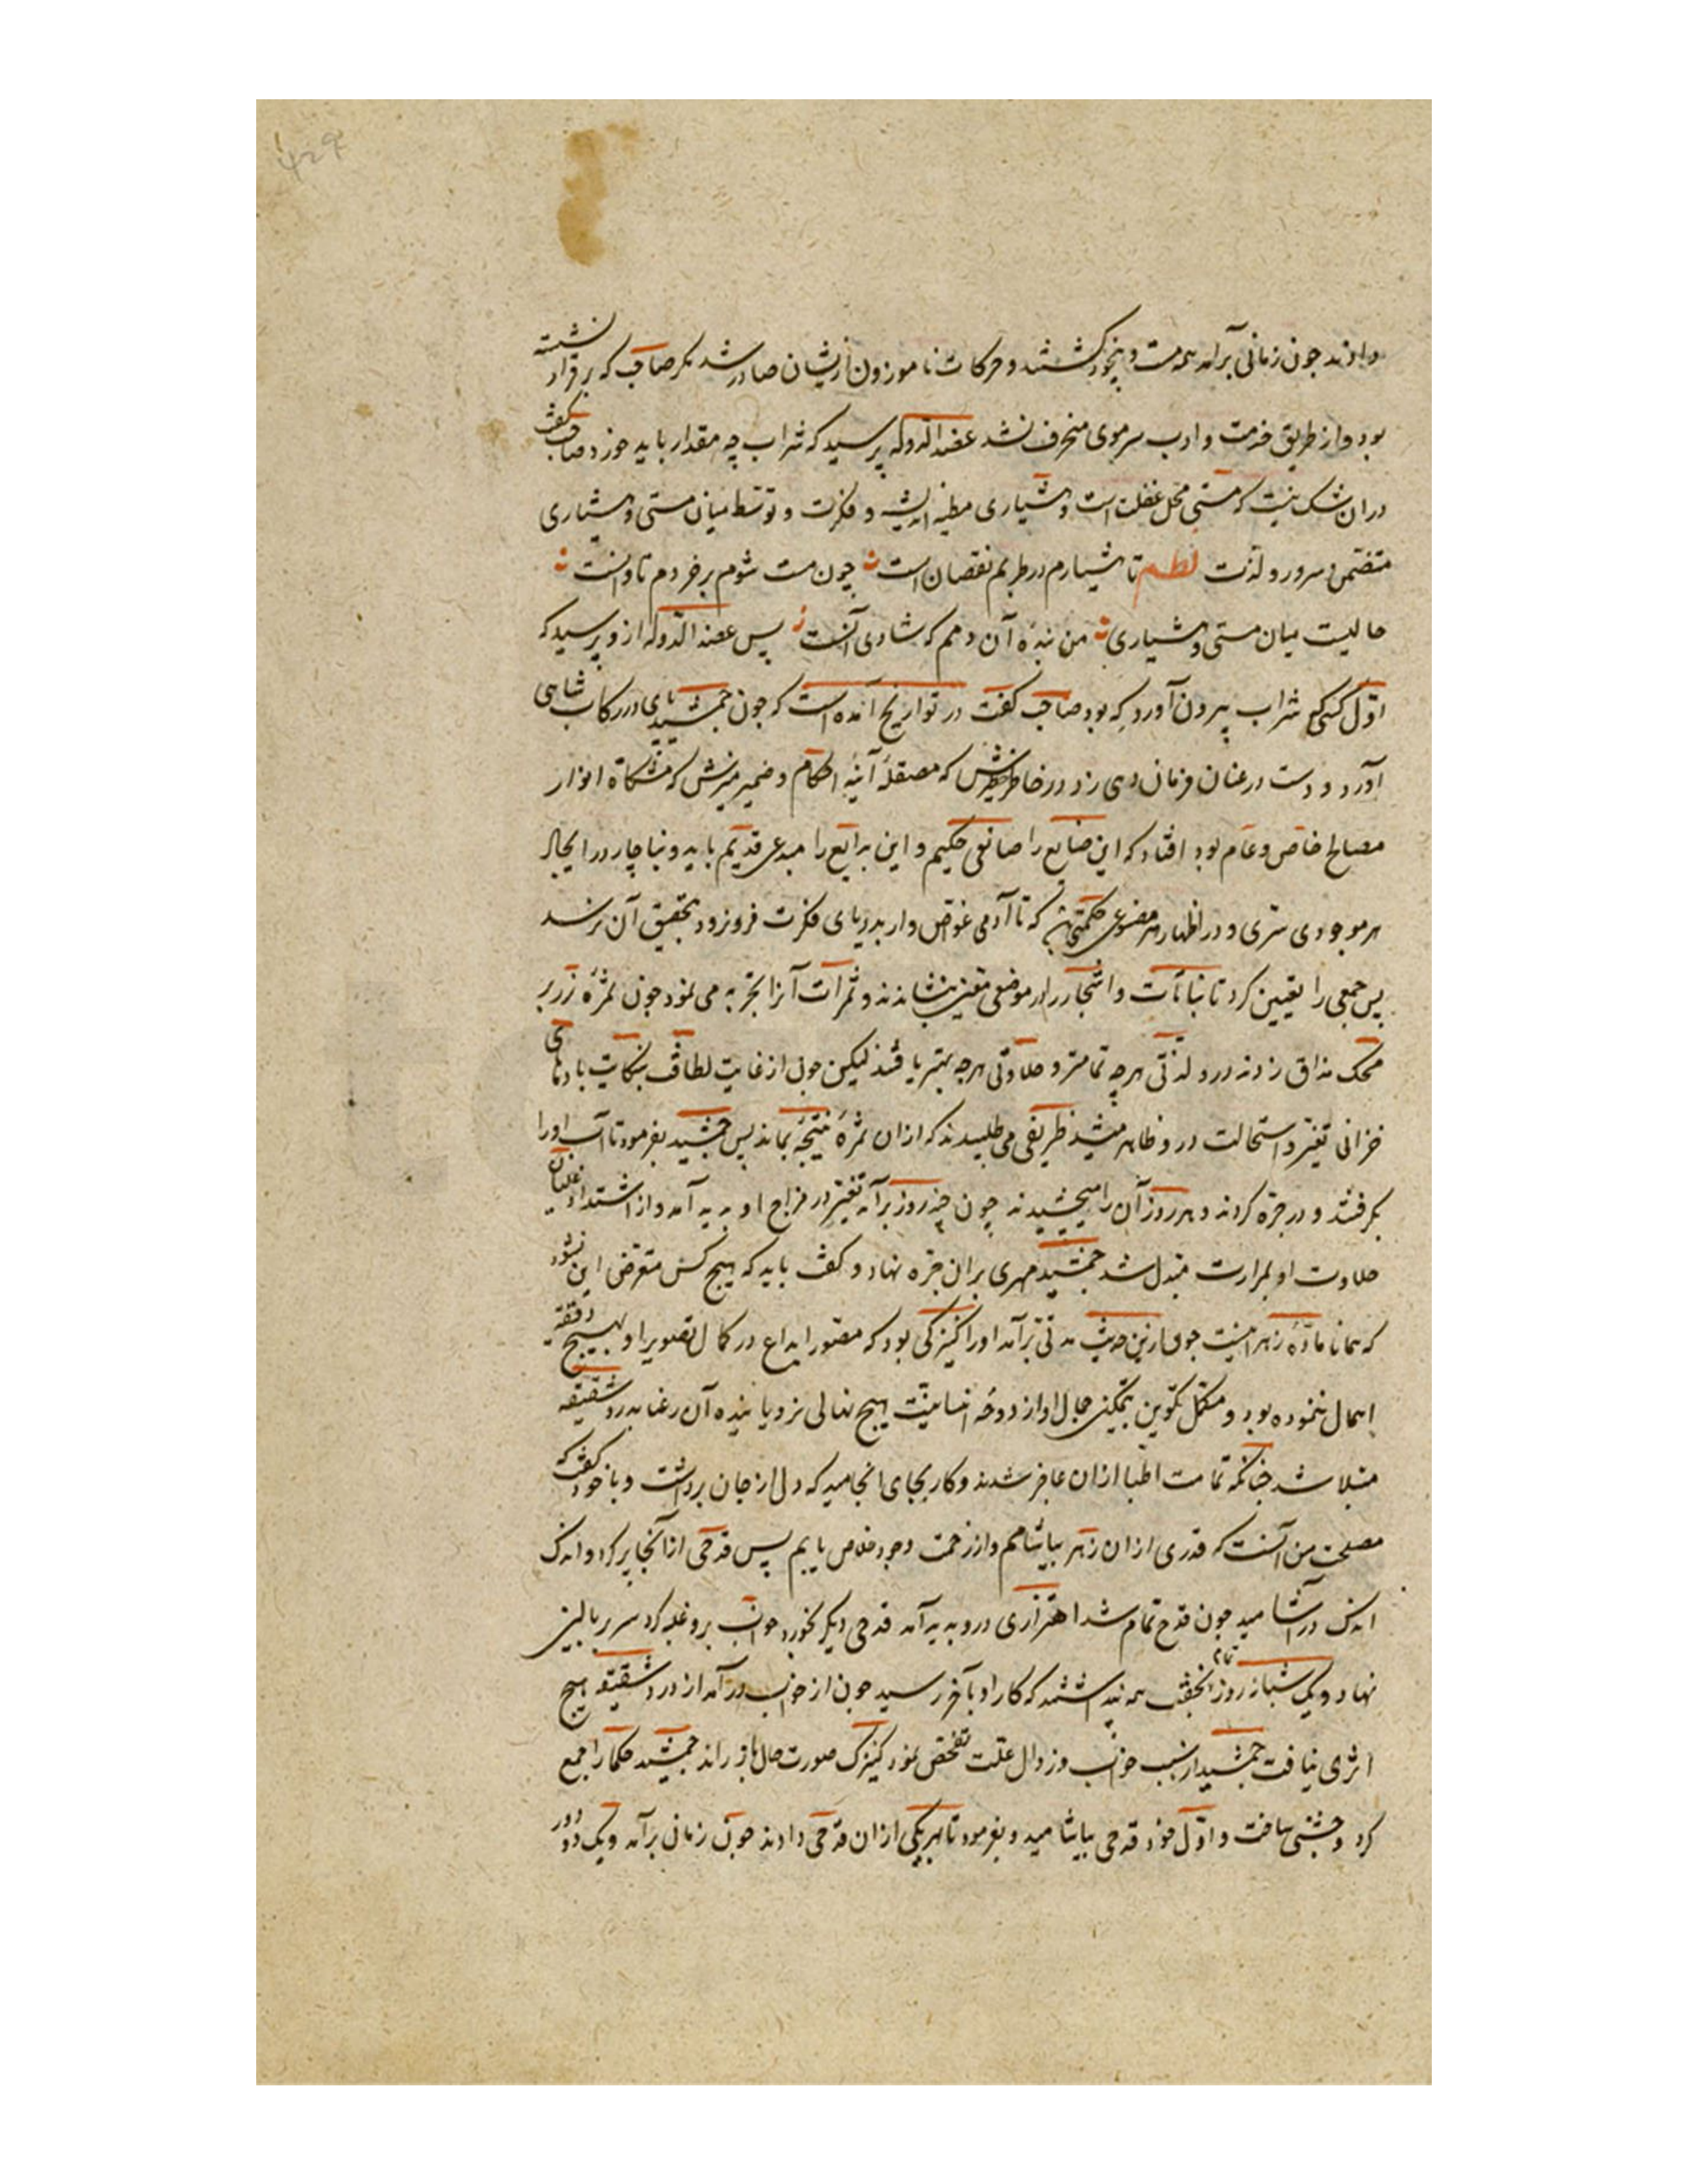 دادند جون زمانی برامد همه مست و بیخود کشتند و حرکات ناموزون ازیشان صادر شد مکر صاحب که برقرار نشسته
بود و از طریق خدمت و ادب سر موی منحرف نشد عضدالدوله پرسید که شراب چه مقدار باید خورد صاحب کفت
دران شک نیست که مستی محل غفلت است و هشیاری مظنه اندیشه و فکرت و توسط میان مستی و هشیاری
متضمن سرور و لذت نظم تا هشیارم در طربم نقصان است چون مست شوم بر خردم تاوانست
حالیست میان مستی و هشیاری من بندهٔ آن دمم که شادی آنست پس عضد الدوله ازو پرسید که
اول کسی که شراب بیرون آورد که بود صاحب کفت در تواریخ آمده است که جون جمشید پای در رکاب شاهی
آورد و دست در عنان فرمان دهی زد در خاطر خطیرش که مصقلهٔ آینهٔ احکام و ضمیر منیرش که مشکاة انوار
مصالح خاص و عام بود افتاد که این صنایع را صانعی حکیم و این بدایع را مبدعی قدیم باید و بناچار در ایجاد
هر موجودی سری و در اظهار هر مصنوعی حکمتی که تا آدمی غواص وار بدریای فکرت فرو نرود بتحقیق آن نرسد
پس جمعی را تعیین کرد تا نباتات و اشجار را در موضعی معین بنشاندند و ثمرات آنرا تجربه می نمود جون ثمرهٔ رز بر
محک مذاق زدند درو لذتی هرچه تمامتر و حلاوتی هرچه بهتر یافتند لیکن جون از غایت لطافت بنکایت بادهای
خزانی تغییر و استحالت درو ظاهر میشد طریقی می طلبیدند که ازان ثمرهٔ نتیجهٔ بماند پس جمشید بفرمود تا آب اورا
بکرفتند و در خره کردند و هر روز آن را میچشیدند چون چند روز برآمد تغییر در مزاج او بدید آمد و از اشتداد غلیان
حلاوت او بمرارت مبدل شد جمشید مهری بران خره نهاد و کفت باید که هیچ کس متعرض این نشود
که همانا مادهٔ زهر اینست جون ازین حدیث مدتی برآمد اورا کنیزکی بود که مصور ابداع در کمال تصویر او بهیچ دقیقه
اهمال ننموده بود و مکمل تکوین بتمکین جمال او از دوحهٔ انسانیت هیچ نهالی نرویانیده آن رعنا بدرد شقیقه
مبتلا شد چنانکه تمامت اطبا ازان عاجز شدند و کار بجای انجامید که دل از جان برداشت و با خود کفت که
مصلحت من آنست که قدری ازان زهر بیاشامم و از زحمت وجود خلاص یابم پس قدحی ازانجا پر کرد و اندک
اندک در آشامید جون قدح تمام شد اهتزازی درو بدید آمد قدحی دیکر بخورد خواب برو غلبه کرد سر ببالین
نهاد و یک شبانروز تمام بخفت همه پنداشتند که کار او بآخر رسید جون از خواب در آمد از درد شقیقه هیچ
اثری نیافت جمشید از سبب خواب و زوال علت تفحص نمود کنیزک صورت حال باز راند جمشید حکما را جمع
کرد و جشنی ساخت و اول خود قدحی بیاشامید و بفرمود تا بهر یکی ازان قدحی دادند جون زمانی برآمد و یک دو دور